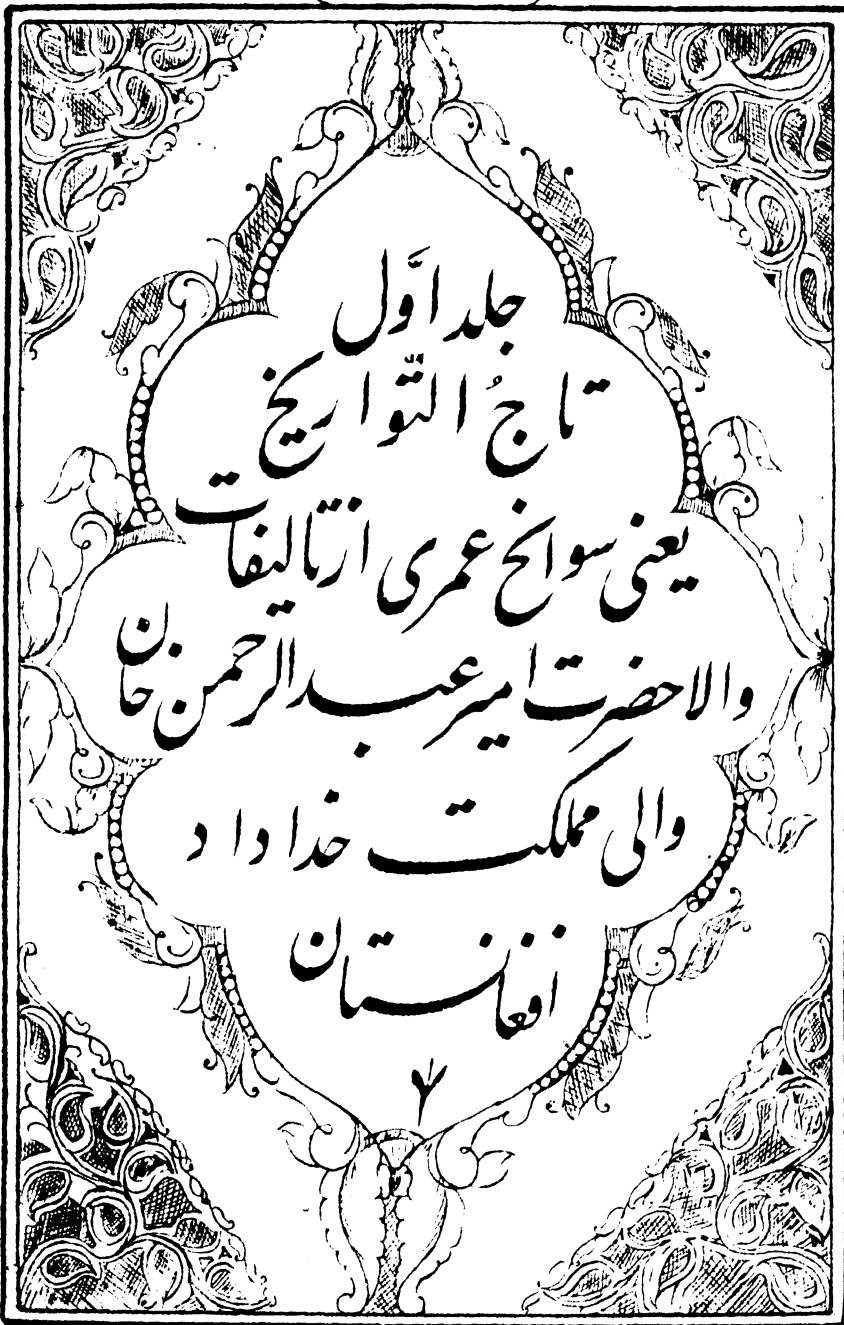 جلد اوَّل
تاجُ التَّواریخ
یعنی سوانح عمری از تالیفات
والاحضرت امیر عبدالرحمن خان
والی مملکت خداداد
افغانستان